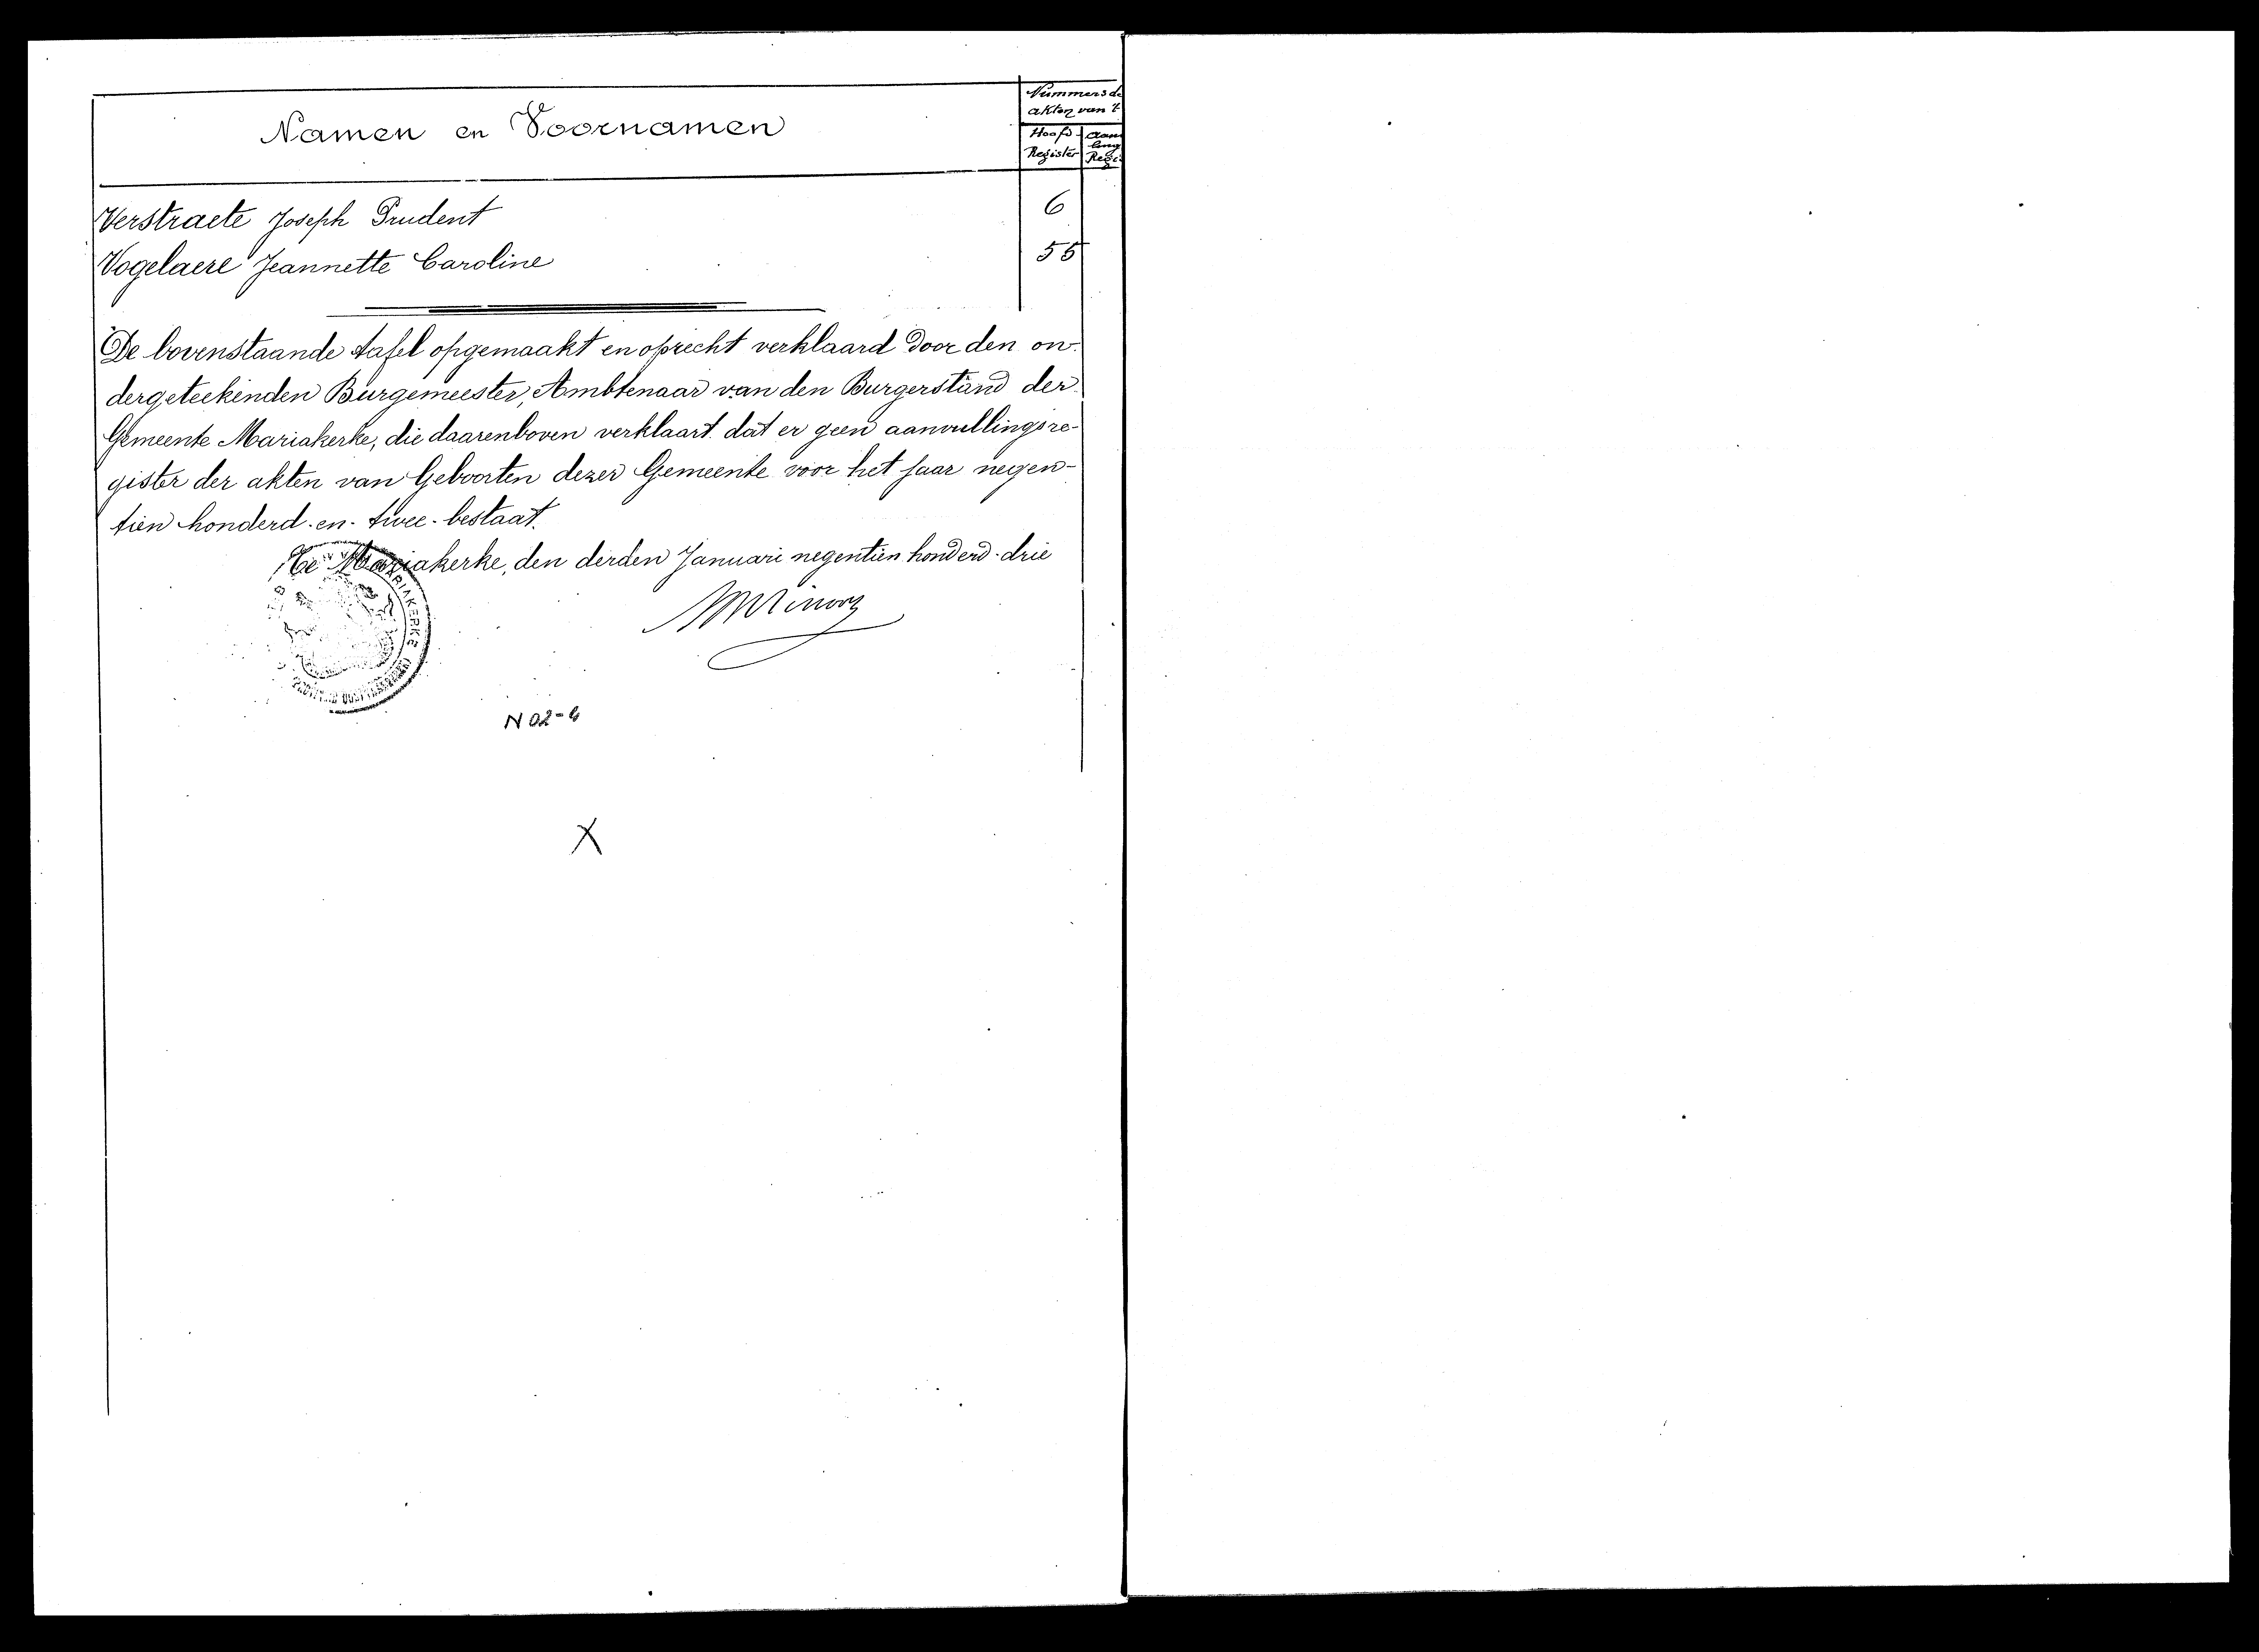 Namen en Voornamen
Nummers de
akten van 't
Hoofd-
Register
Aan
ling
Regi
Verstraete Joseph Prudent 6
Vogelaere Jeannette Caroline 55
De bovenstaande tafel opgemaakt en oprecht verklaard door den on-
dergeteekenden Burgemeester, Ambtenaar van den Burgerstand der
Gemeente Mariakerke, die daarenboven verklaart dat er geen aanvullingsre-
gister der akten van Geboorten dezer Gemeente voor het jaar negen-
tien honderd-en-twee-bestaat.
Te Mariakerke, den derden Januari negentien honderd-drie
MARIAKERKE
N 02-4
X